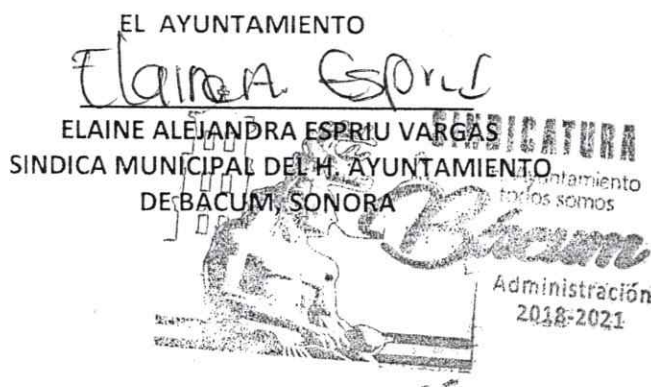 EL AYUNTAMIENTO
Elaine A. Espriu
ELAINE ALEJANDRA ESPRIU VARGAS
SINDICA MUNICIPAL DEL H. AYUNTAMIENTO
DE BACUM, SONORA
SINDICATURA
Ayuntamiento
todos somos
Bácum
Administración
2018-2021